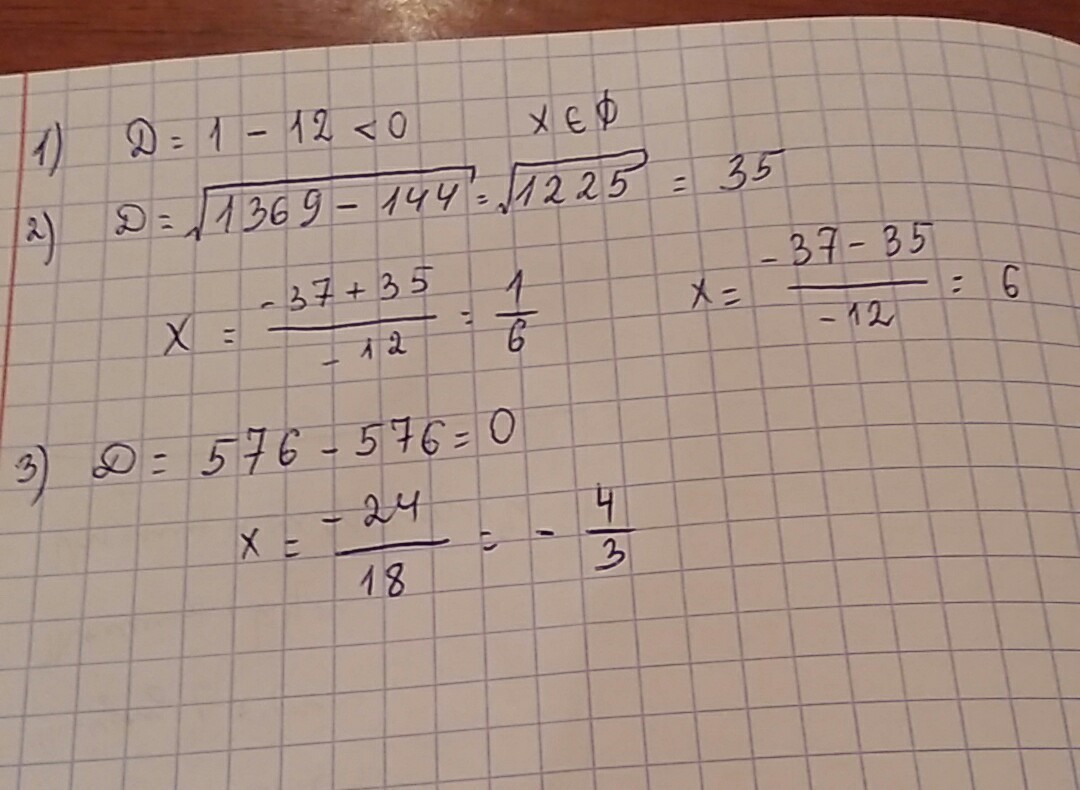 1) D = 1 - 12 < 0 x ∈ ϕ
2) D = √1369 - 144 = √1225 = 35
x = -37 + 35 / -12 = 1/6 x = -37 - 35 / -12 = 6
3) D = 576 - 576 = 0
x = -24 / 18 = - 4/3